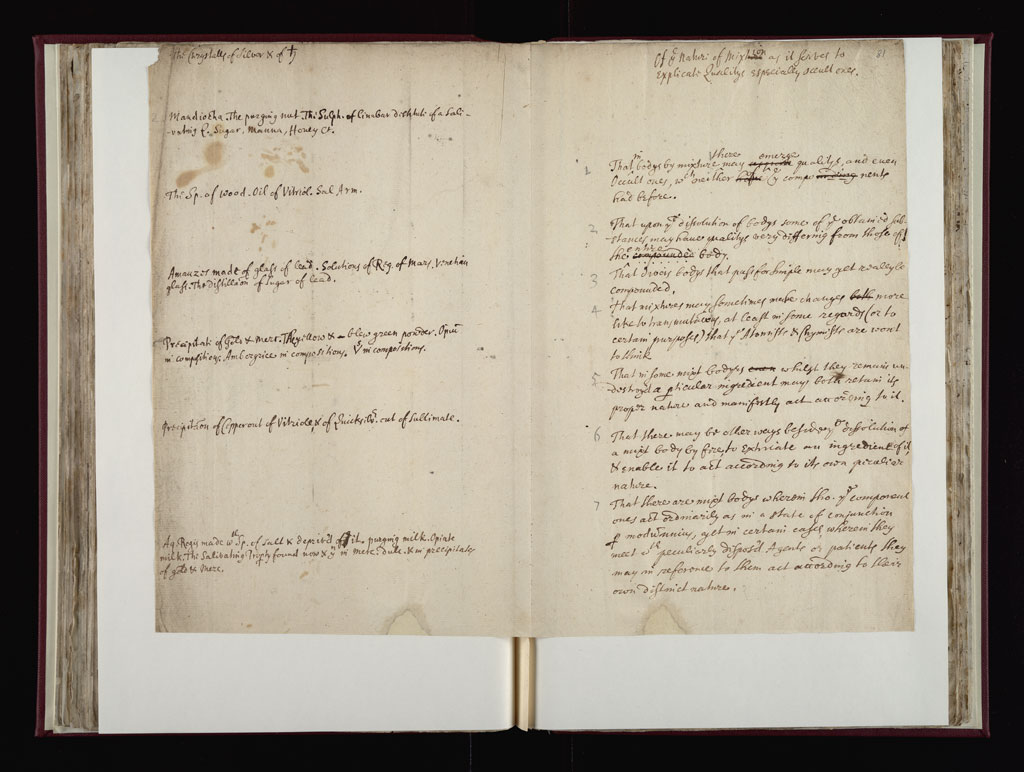 The Chrystalls of Silver & of ♄
Mandiocha. The purging nut. The Sulph. of Cinabar distitute of a Sali-
-vating Sugar, Manna, Honey &c.
The Sp. of Wood. Oil of Vitriol. Sal Arm.
Amauzes made of glass of lead. Solutions of Reg. of Mars. Venetian
glass. The distillation of Sugar of lead.
Precipitate of Gold & Merc. The yellow & blew green powder. Opium
in compositions. Ambergrice in compositions. ☿ in compositions.
Precipitation of Copper out of Vitriole, & of Quicksilvr. out of Sublimate.
Aq. Regis made wth Sp. of Salt & depriv'd of its purging milk. Opiate
milk. The Salivating found now & yn in Merc. dulc. & in precipitates
of gold & Merc.
Of ye Nature of Mixtion as it serves to
Explicate Qualitys especially occult ones.
81
1 That in bodys by mixture there may emerge qualitys, and even
Occult ones, wch neither ye compo nents
had before.
2 That upon ye dissolution of bodys some of ye obtained sub-
stances may have qualitys very differing from those of
the entire compounded body.
3 That divers bodys that pass for simple may yet really be
compounded.
4 That mixtures may sometimes make changes both more
like to transmutations, at least in some regards (or to
certain purposes) that ye Atomists & Chymists are wont
to think
5 That in some mixt bodys even whilst they remain un-
destroyd a pticular ingredient may both retain its
proper nature and manifestly act according to it.
6 That there may be other ways beside ye dissolution of
a mixt body by fire, to Extricate an ingredient of it
& enable it to act according to its own peculiar
nature.
7 That there are mixt bodys wherein tho. ye component
ones act ordinarily as in a state of conjunction
p modum unius, yet in certain cases wherein they
meet wth peculiarly dispos'd Agents or patients they
may in reference to them act according to their
own distinct nature.